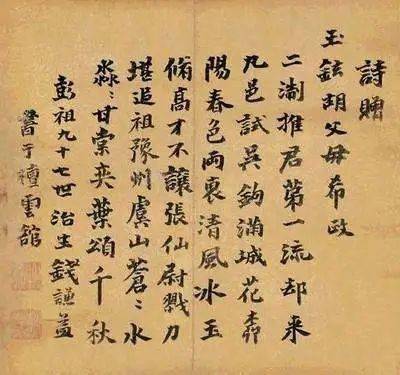 詩贈
玉鉉胡父母希政
二淛推君第一流却来
九邑試吳鉤滿城花
陽春色兩褎清風冰玉
脩高才不讓張仙尉戮力
堪追祖豫州虞山蒼〻水
淼〻甘棠奕葉頌千秋
彭祖九十七世治生錢謙益
書于雲館